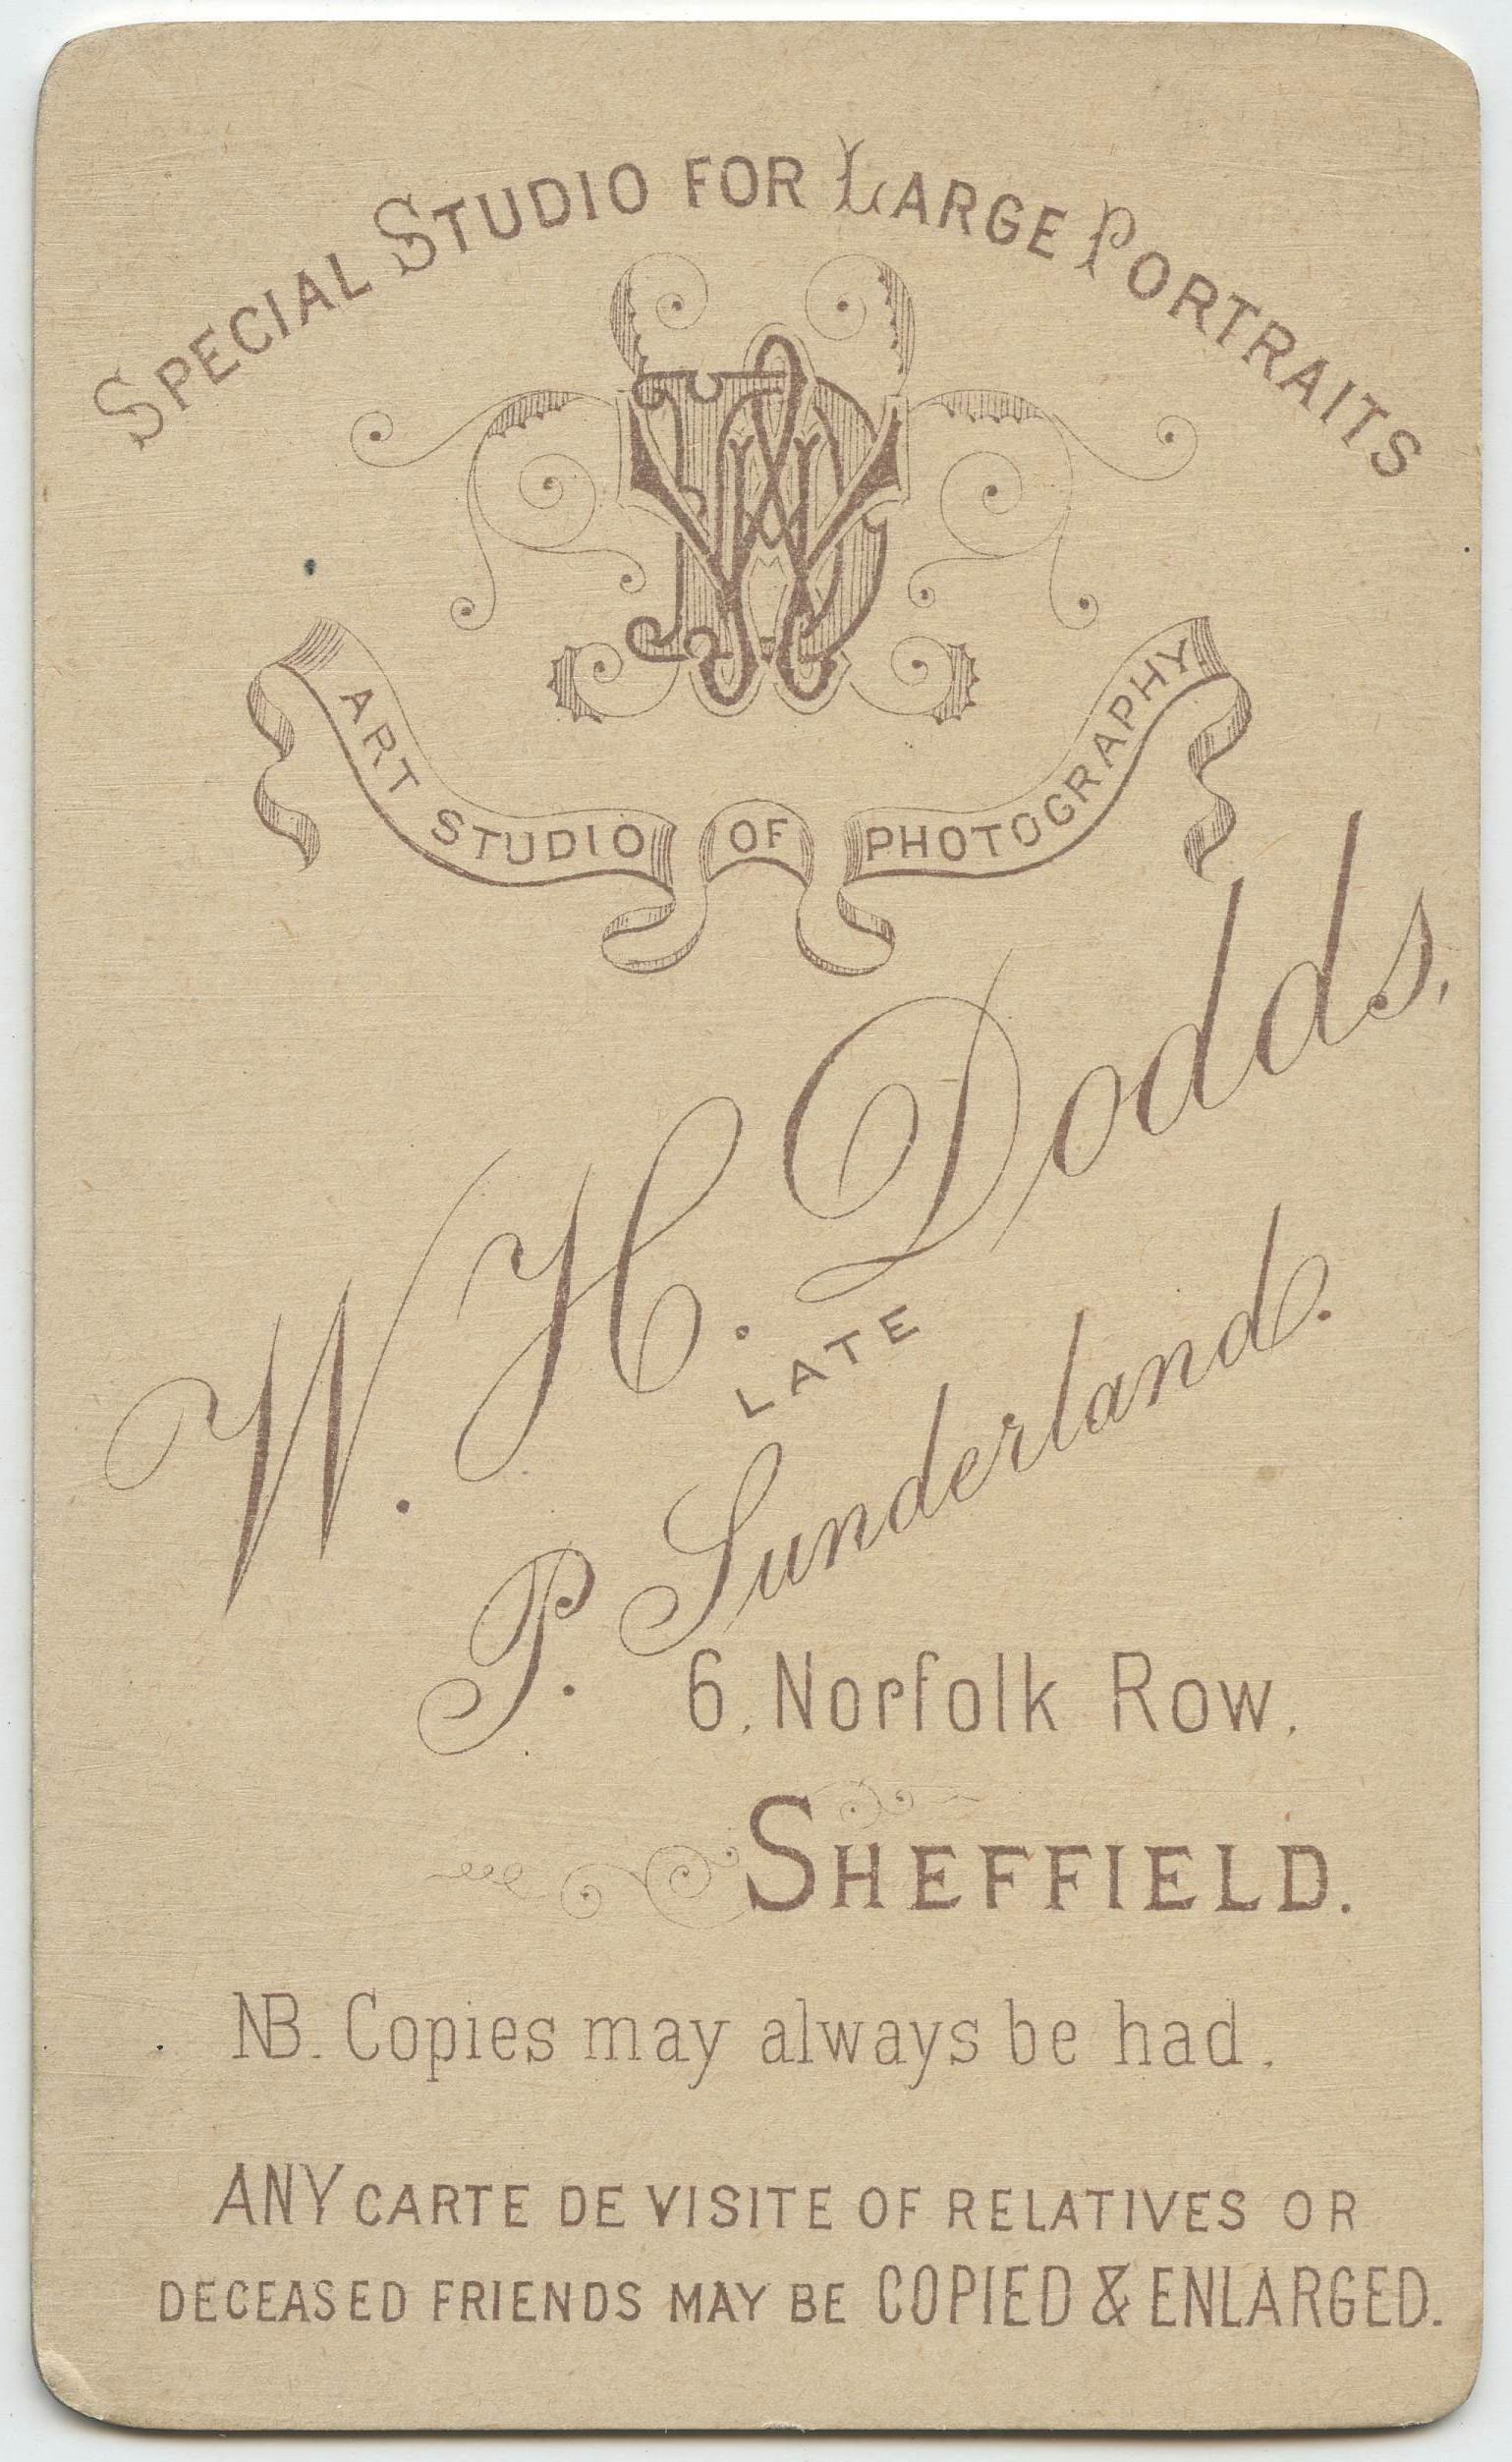 SPECIAL STUDIO FOR LARGE PORTRAITS
WHD
ART STUDIO OF PHOTOGRAPHY.
W. H. Dodds,
LATE
P. Sunderland.
6, Norfolk Row,
SHEFFIELD.
NB. Copies may always be had.
ANY CARTE DE VISITE OF RELATIVES OR
DECEASED FRIENDS MAY BE COPIED & ENLARGED.